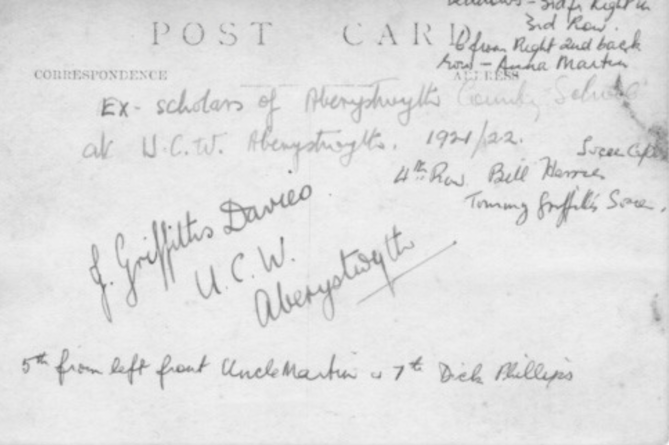 3rd fr Right in
3rd Row.
POST CARD
6 from Right 2nd back
Row - Anna Martin
CORRESPONDENCE
ADDRESS
Ex-scholars of Aberystwyth County School
at U.C.W. Aberystwyth. 1921/22.
Soccer Capt
4th Row Bill
Tommy Griffiths Soccer.
J. Griffiths Davies
U.C.W.
Aberystwyth
5th from left front Uncle Martin & 7th Dick Phillips